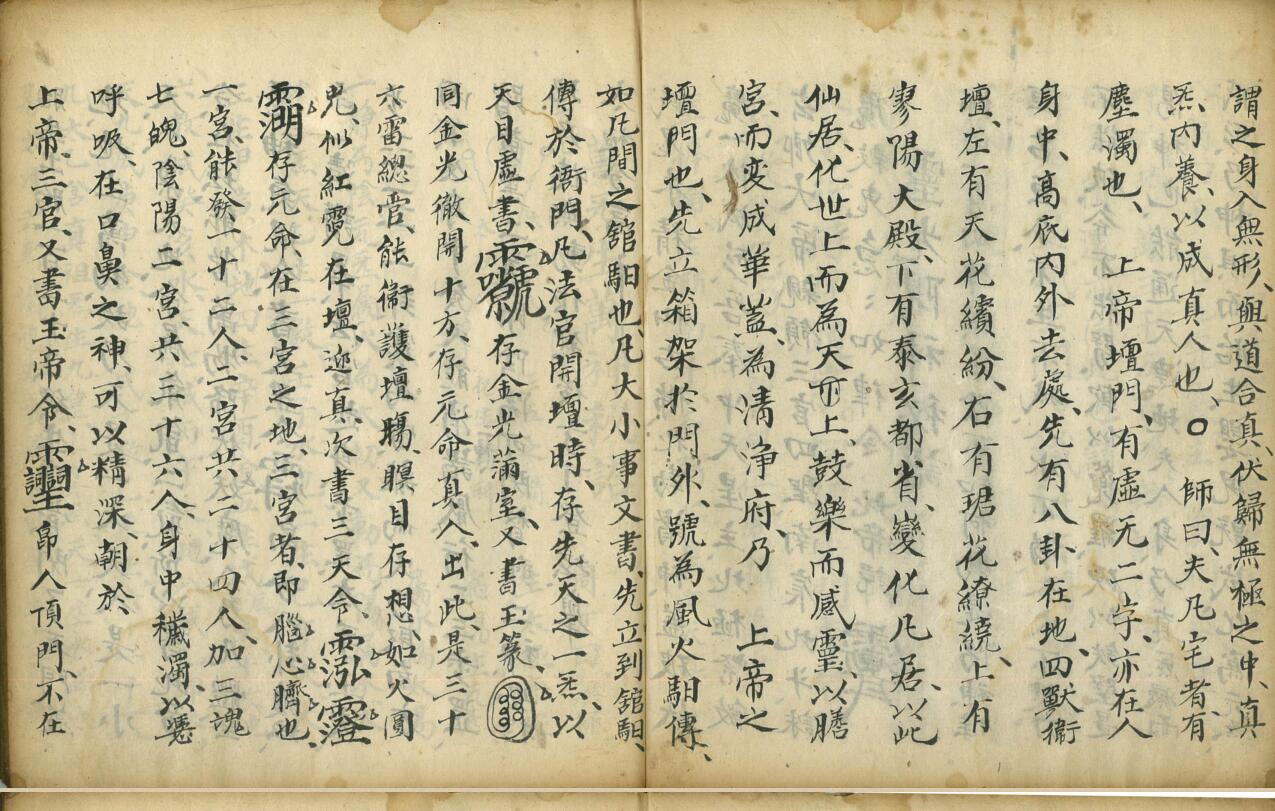 謂之身入無形、與道合真、伏歸無極之中、真
炁內養、以成真人也、○　師曰、夫凡宅者、有
塵濁也、　上帝壇門、有虛无二字、亦在人
身中、高底內外去處、先有八卦在地、四獸衛
壇、左有天花繽紛、右有珺花繚繞、上有
寥陽大殿、下有泰玄都省、變化凡居、以此
仙居、化世上而為天中上、鼓樂而感靈、以
宮、而変成華盖、為清淨府、乃　上帝之
壇門也、先立箱架於門外、號為風火馹傳、
如凡間之舘馹也、凡大小事文書、先立到舘馹、
傳於衙門、凡法官開壇時、存先天之一炁、以
天目虛書、存金光滿室、又書玉篆、
同金光徹開十方、存元命真人、出此、是三十
六雷緫管、能衛護壇塲、瞑目存想、如火圓
光、似紅霓在壇、迎真、次書三天令、
存元命、在三宮之地、三宮者、即腦心臍也、
一宮、能發一十二人、二宮共二十四人、加三魂
七魄、陰陽二宮、共三十六人、身中穢濁、以憑
呼吸、在口鼻之神、可以精深、朝於
上帝、三官、又書玉帝令、帛人頂門、不在